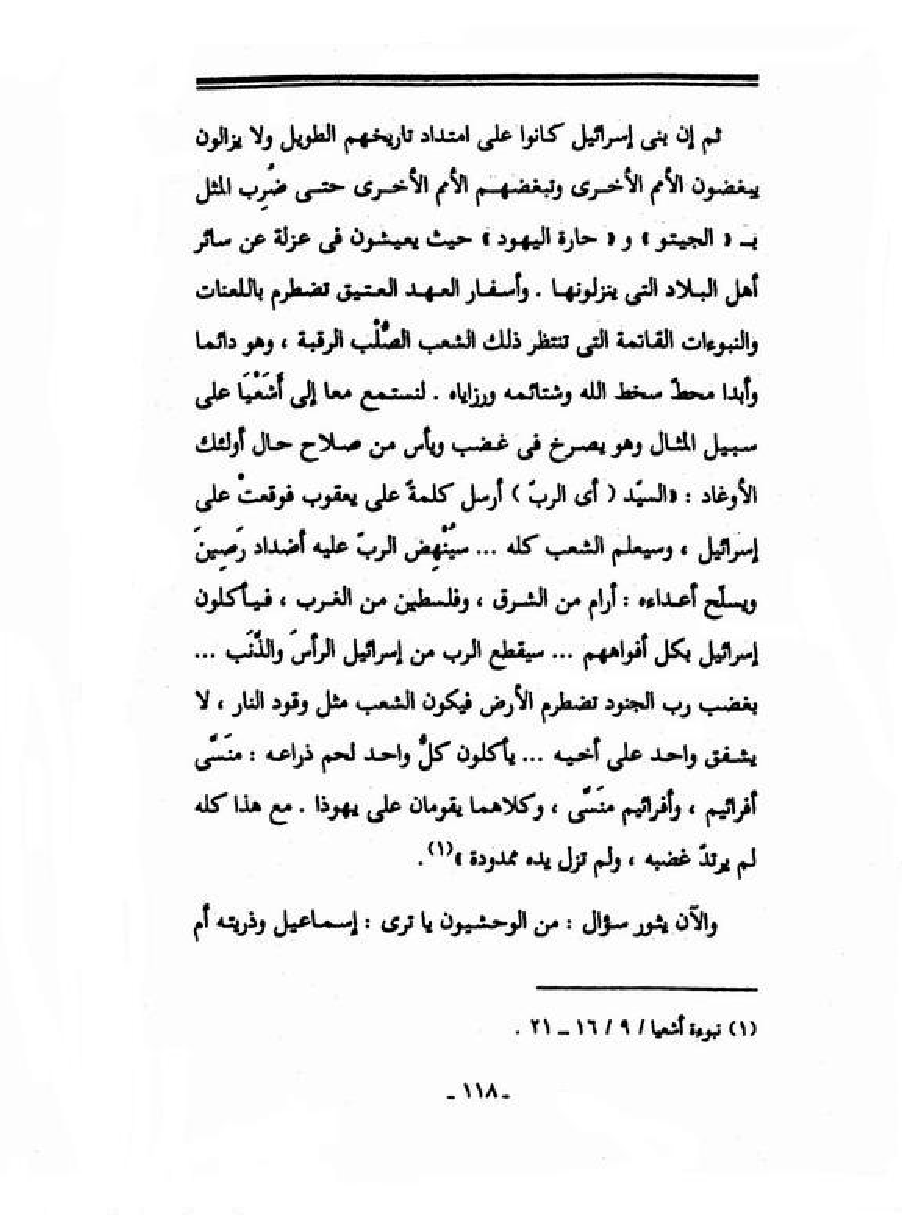 ثم إن بنى إسرائيل كانوا على امتداد تاريخهم الطويل ولا يزالون
يبغضون الأمم الأخـرى وتبغضهـم الأمم الأخـرى حتـى ضُرِب المثل
بـ « الجيتو » و « حارة اليهود » حيث يعيشون فى عزلة عن سائر
أهل البـلاد التى ينزلونهـا . وأسـفـار العـهـد العـتيق تضطرم باللعنات
والنبوءات القاتمة التى تنتظر ذلك الشعب الصُّلْب الرقبة ، وهو دائما
وأبدا محطّ سخط الله وشتائمه ورزاياه . لنستـمع معا إلى أَشَعْيَا على
سبيل المثـال وهو يصـرخ فى غـضب ويأس من صـلاح حـال أولئك
الأوغاد : «السيّد ( أى الربّ ) أرسل كلمةً على يعقوب فوقعتْ على
إسرائيل ، وسيعلم الشعب كله ... سيُنْهِض الربّ عليه أضداد رَصِينَ
ويسلّح أعـداءه : أرام من الشـرق ، وفلسطين من الغـرب ، فـيـأكلون
إسرائيل بكل أفواههم ... سيقطع الرب من إسرائيل الرأسَ والذَّنَب ...
بغضب رب الجنود تضطرم الأرض فيكون الشعب مثل وقود النار ، لا
يشـفق واحـد على أخـيـه ... يأكلون كلُّ واحـد لحم ذراعـه : منَسَّى
أفرائيم ، وأفرائيم منَسَّى ، وكلاهما يقومان على يهوذا . مع هذا كله
لم يرتدّ غضبه ، ولم تزل يده ممدودة »(١).
والآن يثور سـؤال : من الوحـشـيـون يا ترى : إسـمـاعيل وذريتـه أم
(١) نبوءة أشعيا / ٩ / ١٦ ــ ٢١ .
ـ ١١٨ ـ